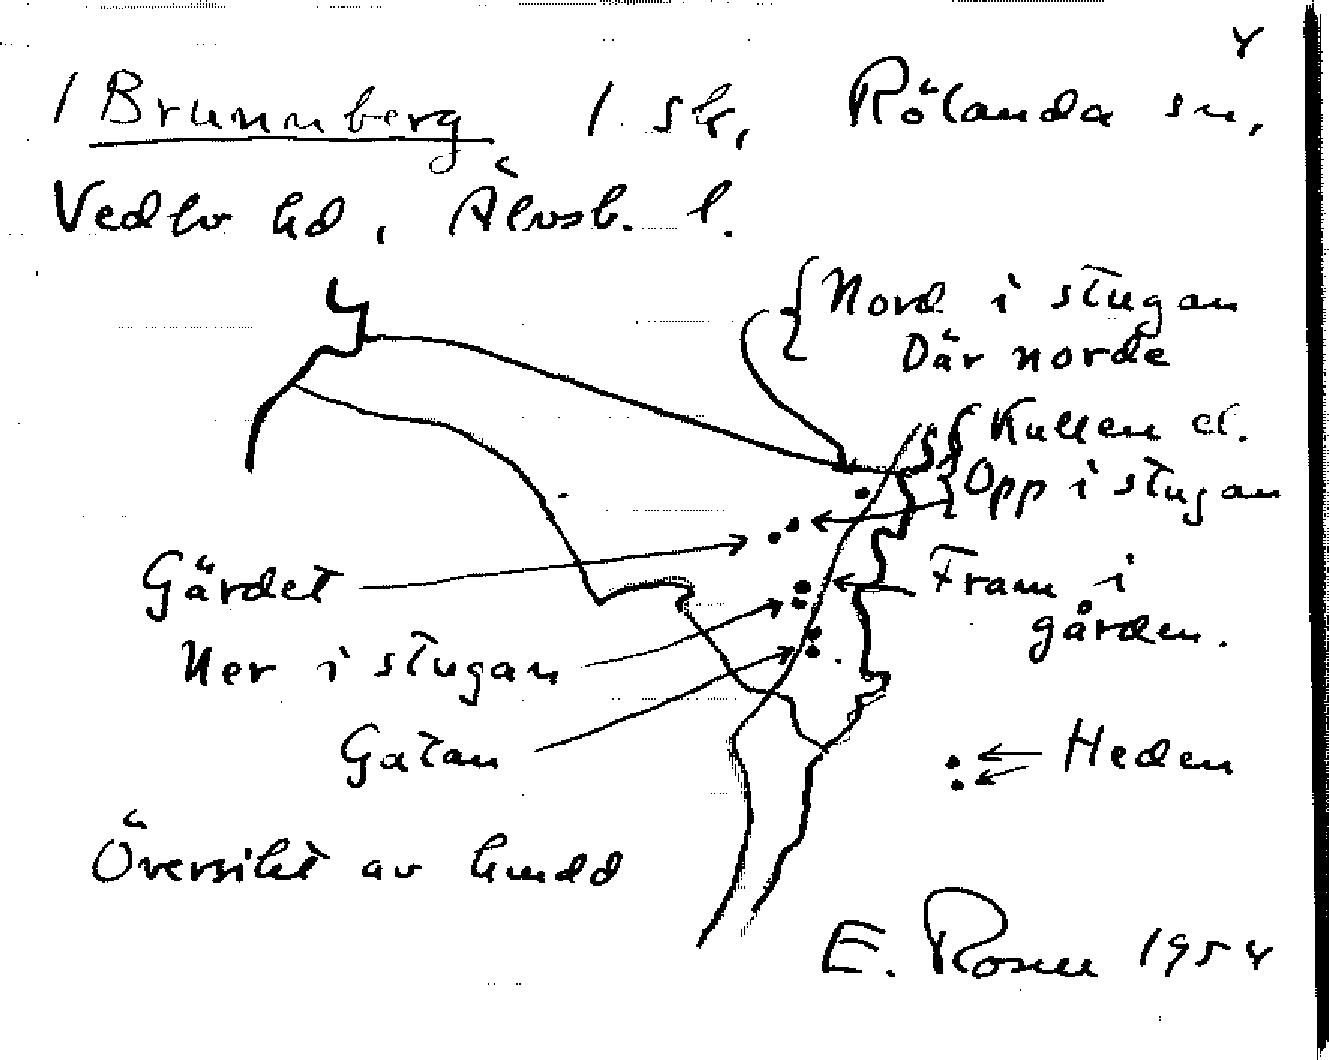 Y
1 Brunnberg 1. sk, Rölanda sn,
Vedbo hd, Älvsb. l.
Nord i stugan
Där norde
Kullen el.
Opp i stugan
Gärdet
Fram i
gården.
Ner i stugan
Gatan
Heden
Översikt av
E. Rosen 1954